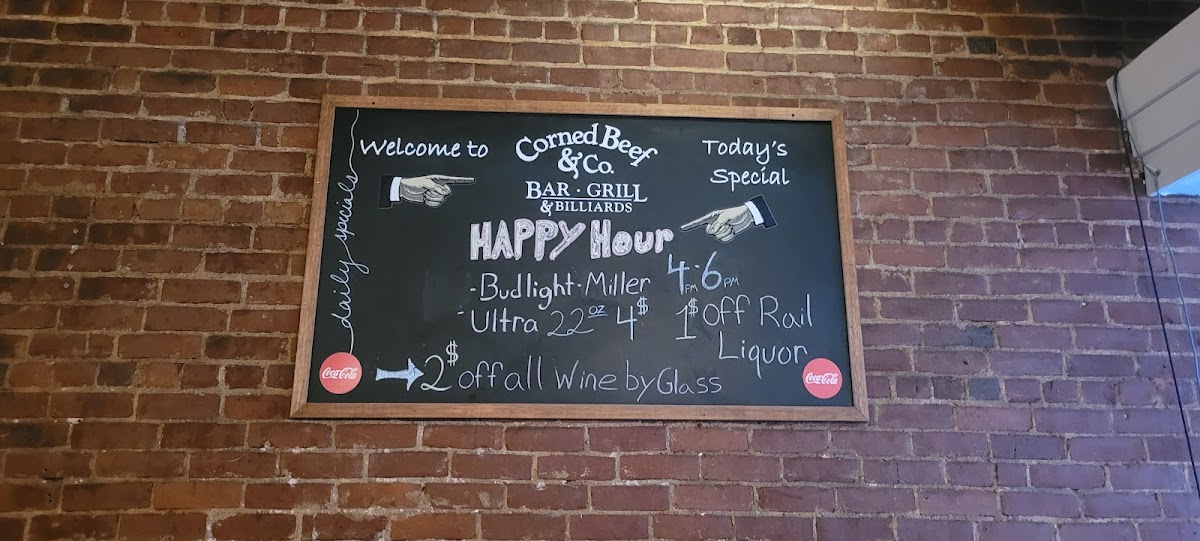 Welcome to
Corned Beef
& Co.
BAR · GRILL
& BILLIARDS
Today's
Special
daily spcials
HAPPY Hour
-Budlight-Miller 4PM-6PM
-Ultra 22oz 4$ 1$ Off Rail
Liquor
2$ off all Wine by Glass
Coca-Cola
Coca-Cola